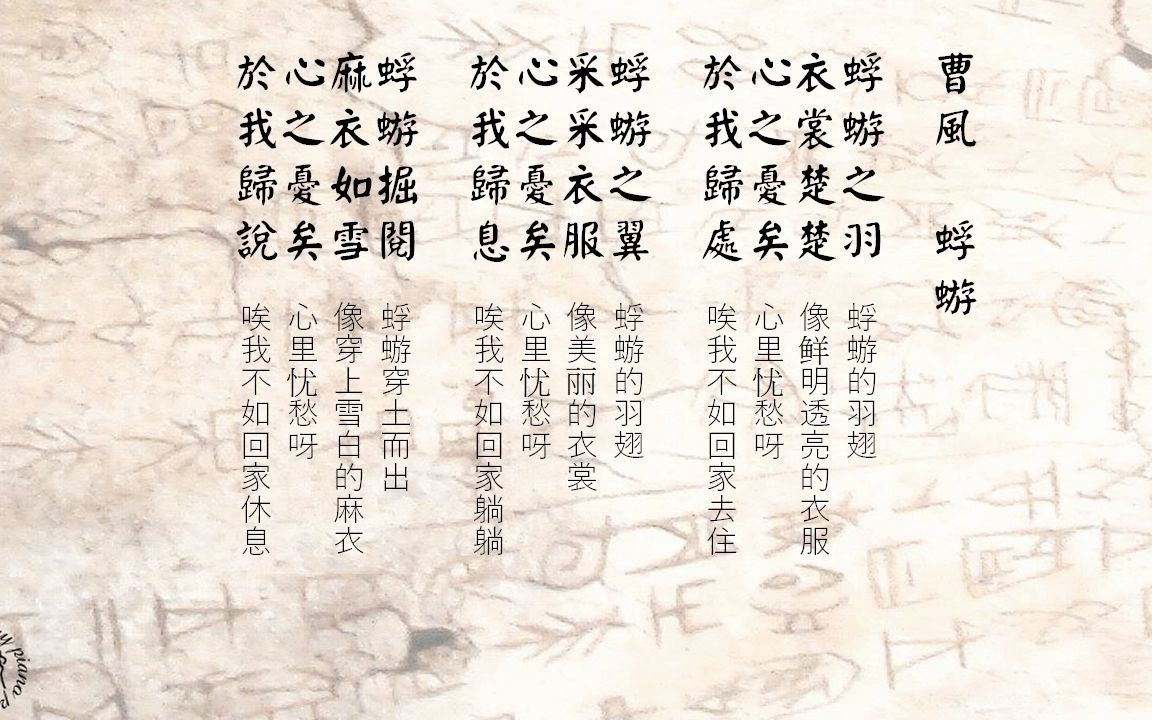 曹風　蜉蝣
蜉蝣之羽
衣裳楚楚
心之憂矣
於我歸處
蜉蝣的羽翅
像鲜明透亮的衣服
心里忧愁呀
唉我不如回家去住
蜉蝣之翼
采采衣服
心之憂矣
於我歸息
蜉蝣的羽翅
像美丽的衣裳
心里忧愁呀
唉我不如回家躺躺
蜉蝣掘閱
麻衣如雪
心之憂矣
於我歸說
蜉蝣穿土而出
像穿上雪白的麻衣
心里忧愁呀
唉我不如回家休息
piano